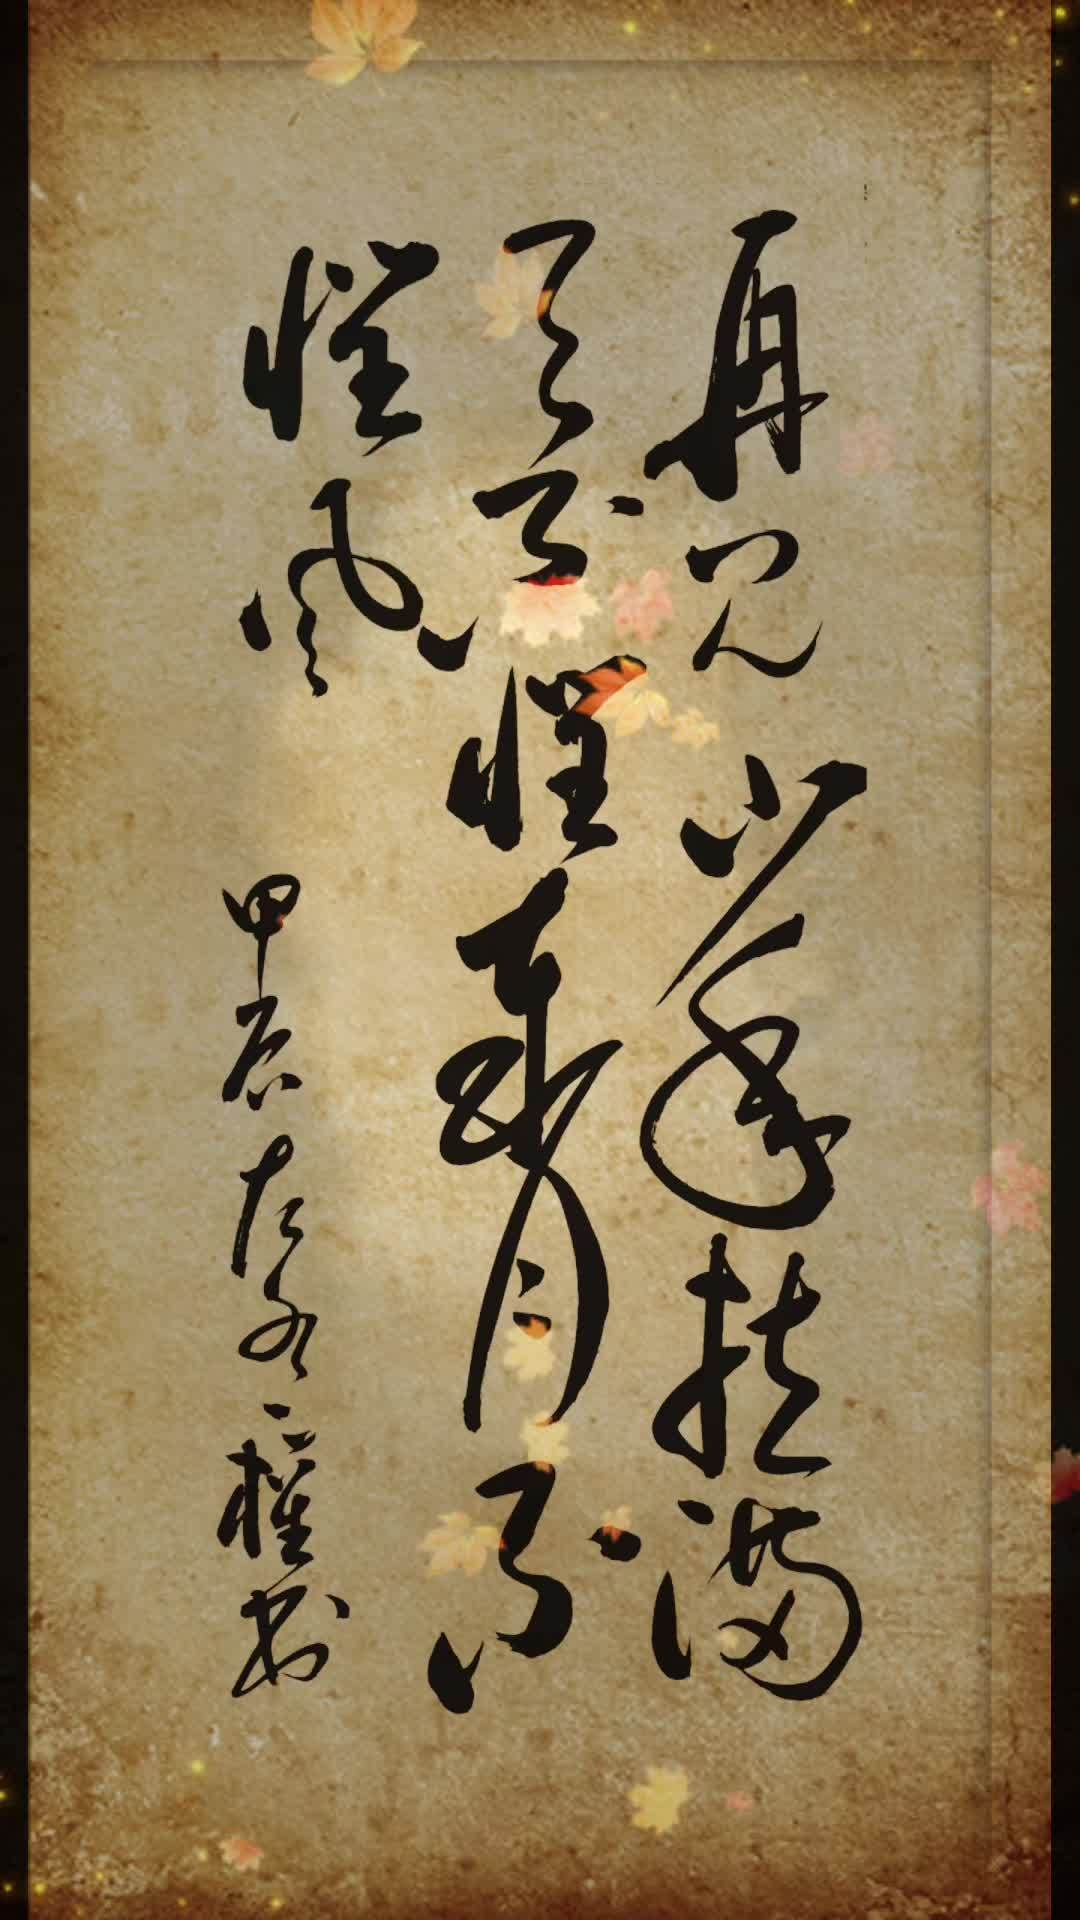 再见少年拉满
弓不惧岁月不
惧风
甲辰 權书